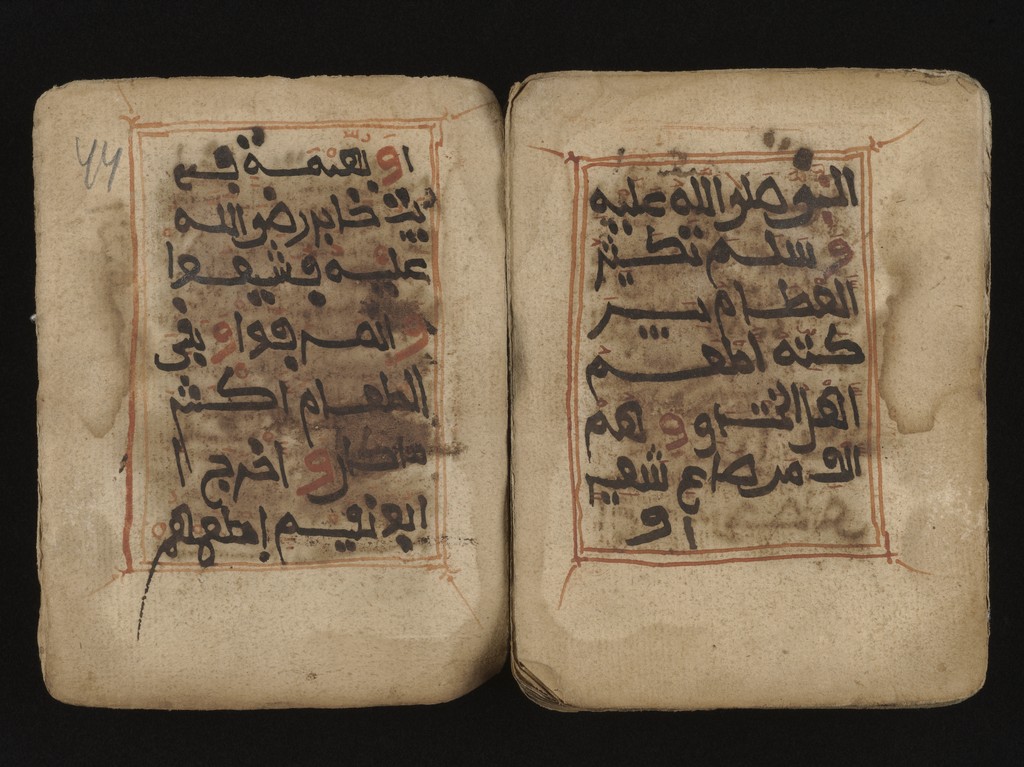 النبي صلى الله عليه
و سلم تكثير
الطعام ببر
كته اطعم
اهل الخندق و هم
الف من صاع شعير
او
44
او بهيمة في
بيت جابر رضي الله
عنه فشبعوا
و انصرفوا و بقي
الطعام اكثر
مما كان و اخرج
ابو نعيم اطعامهم